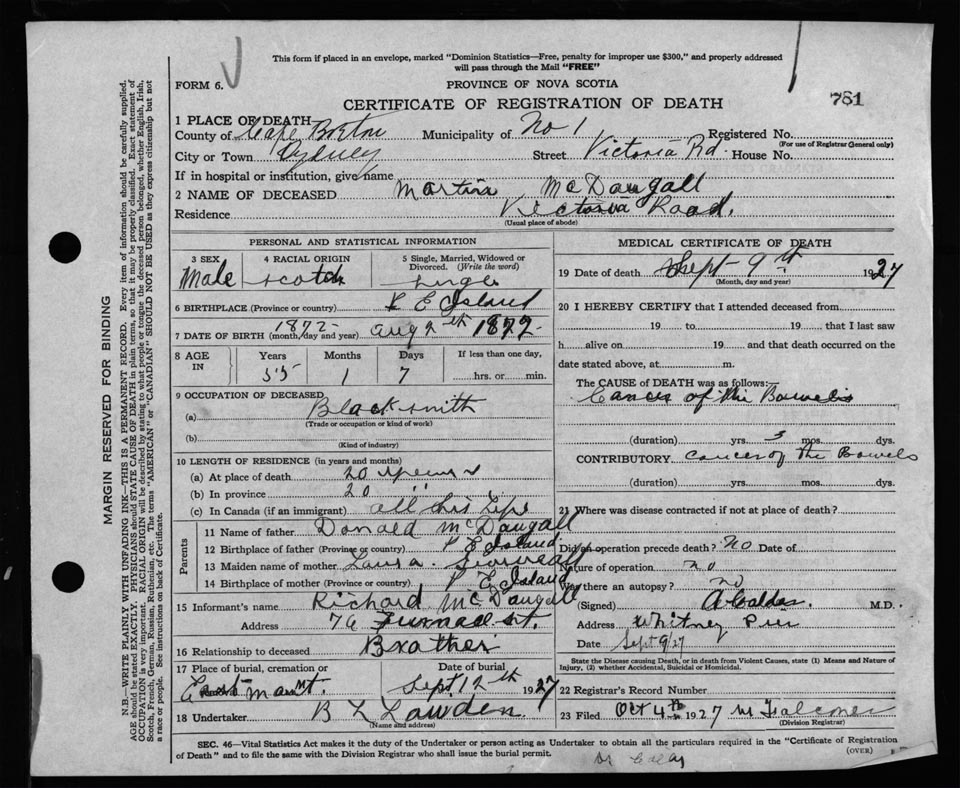 This form if placed in an envelope, marked "Dominion Statistics—Free, penalty for improper use $300," and properly addressed
will pass through the Mail "FREE"
FORM 6.
PROVINCE OF NOVA SCOTIA
CERTIFICATE OF REGISTRATION OF DEATH
781
1 PLACE OF DEATH
County of Cape Breton Municipality of No 1 Registered No.
(For use of Registrar General only)
City or Town Sydney Street Victoria Rd House No.
If in hospital or institution, give name
2 NAME OF DECEASED Martin McDougall
Residence Victoria Road.
(Usual place of abode)
PERSONAL AND STATISTICAL INFORMATION
3 SEX 4 RACIAL ORIGIN 5 Single, Married, Widowed or Divorced. (Write the word)
Male Scotch Single
6 BIRTHPLACE (Province or country) P E Island
7 DATE OF BIRTH (month, day and year) 1872- Aug 2th 1872-
8 AGE IN Years Months Days If less than one day,
55 1 7 hrs. or min.
9 OCCUPATION OF DECEASED
(a) Blacksmith
(Trade or occupation or kind of work)
(b)
(Kind of industry)
10 LENGTH OF RESIDENCE (in years and months)
(a) At place of death 20 years
(b) In province 20 "
(c) In Canada (if an immigrant) all his life
Parents
11 Name of father Donald McDougall
12 Birthplace of father (Province or country) P E Island
13 Maiden name of mother Laura
14 Birthplace of mother (Province or country) P E Island
15 Informant's name Richard McDougall
Address 76 St.
16 Relationship to deceased Brother
17 Place of burial, cremation or Date of burial
Sept 12th 1927
18 Undertaker B L Lowden.
(Name and address)
MEDICAL CERTIFICATE OF DEATH
19 Date of death Sept 9th 1927
(Month, day and year)
20 I HEREBY CERTIFY that I attended deceased from
19 to 19 that I last saw
h alive on 19 and that death occurred on the
date stated above, at m.
The CAUSE OF DEATH was as follows:—
Cancer of the Bowels
(duration) yrs. 3 mos. dys.
CONTRIBUTORY Cancer of the Bowels
(duration) yrs. mos. dys.
21 Where was disease contracted if not at place of death?
Did an operation precede death? no Date of
Nature of operation no
Was there an autopsy? no
(Signed) A Calder M.D.
Address Whitney Pier
Date Sept 9/27
State the Disease causing Death, or in death from Violent Causes, state (1) Means and Nature of
Injury, (2) whether Accidental, Suicidal or Homicidal.
22 Registrar's Record Number
23 Filed Oct 4th 1927 M Falconer
(Division Registrar)
SEC. 46—Vital Statistics Act makes it the duty of the Undertaker or person acting as Undertaker to obtain all the particulars required in the "Certificate of Registration
of Death" and to file the same with the Division Registrar who shall issue the burial permit.
(OVER)
MARGIN RESERVED FOR BINDING
N.B.—WRITE PLAINLY WITH UNFADING INK—THIS IS A PERMANENT RECORD. Every item of information should be carefully supplied.
AGE should be stated EXACTLY. PHYSICIANS should STATE CAUSE OF DEATH in plain terms, so that it may be properly classified. Exact statement of
OCCUPATION is very important. RACIAL ORIGIN will be described by stating to what people or tongue the deceased person belonged, whether English, Irish,
Scotch, French, German, Russian, Ruthenian, etc. The terms "AMERICAN" or "CANADIAN" SHOULD NOT BE USED as they express citizenship but not
a race or people. See instructions on back of Certificate.